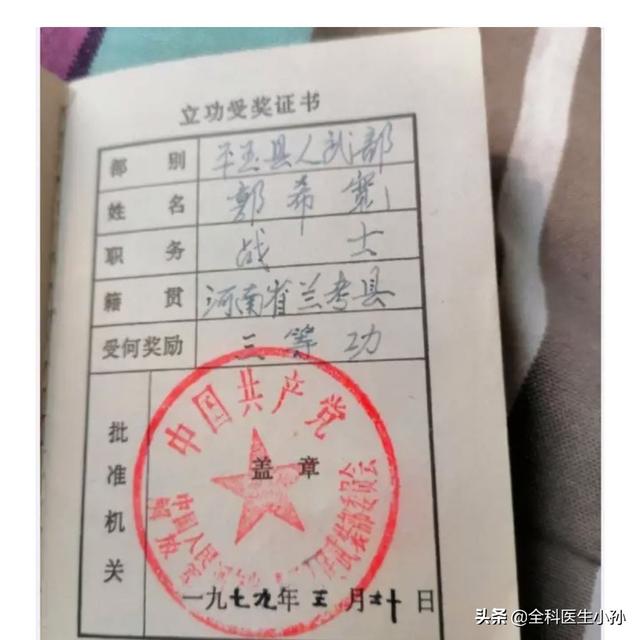 立功受奖证书
部 别 平玉县人武部
姓 名 郭希宽
职 务 战士
籍 贯 河南省兰考县
受何奖励 三等功
批准机关
中国共产党
盖章
中国人民解放军
武装部委员会
一九七九年三月二十日
头条 @全科医生小孙